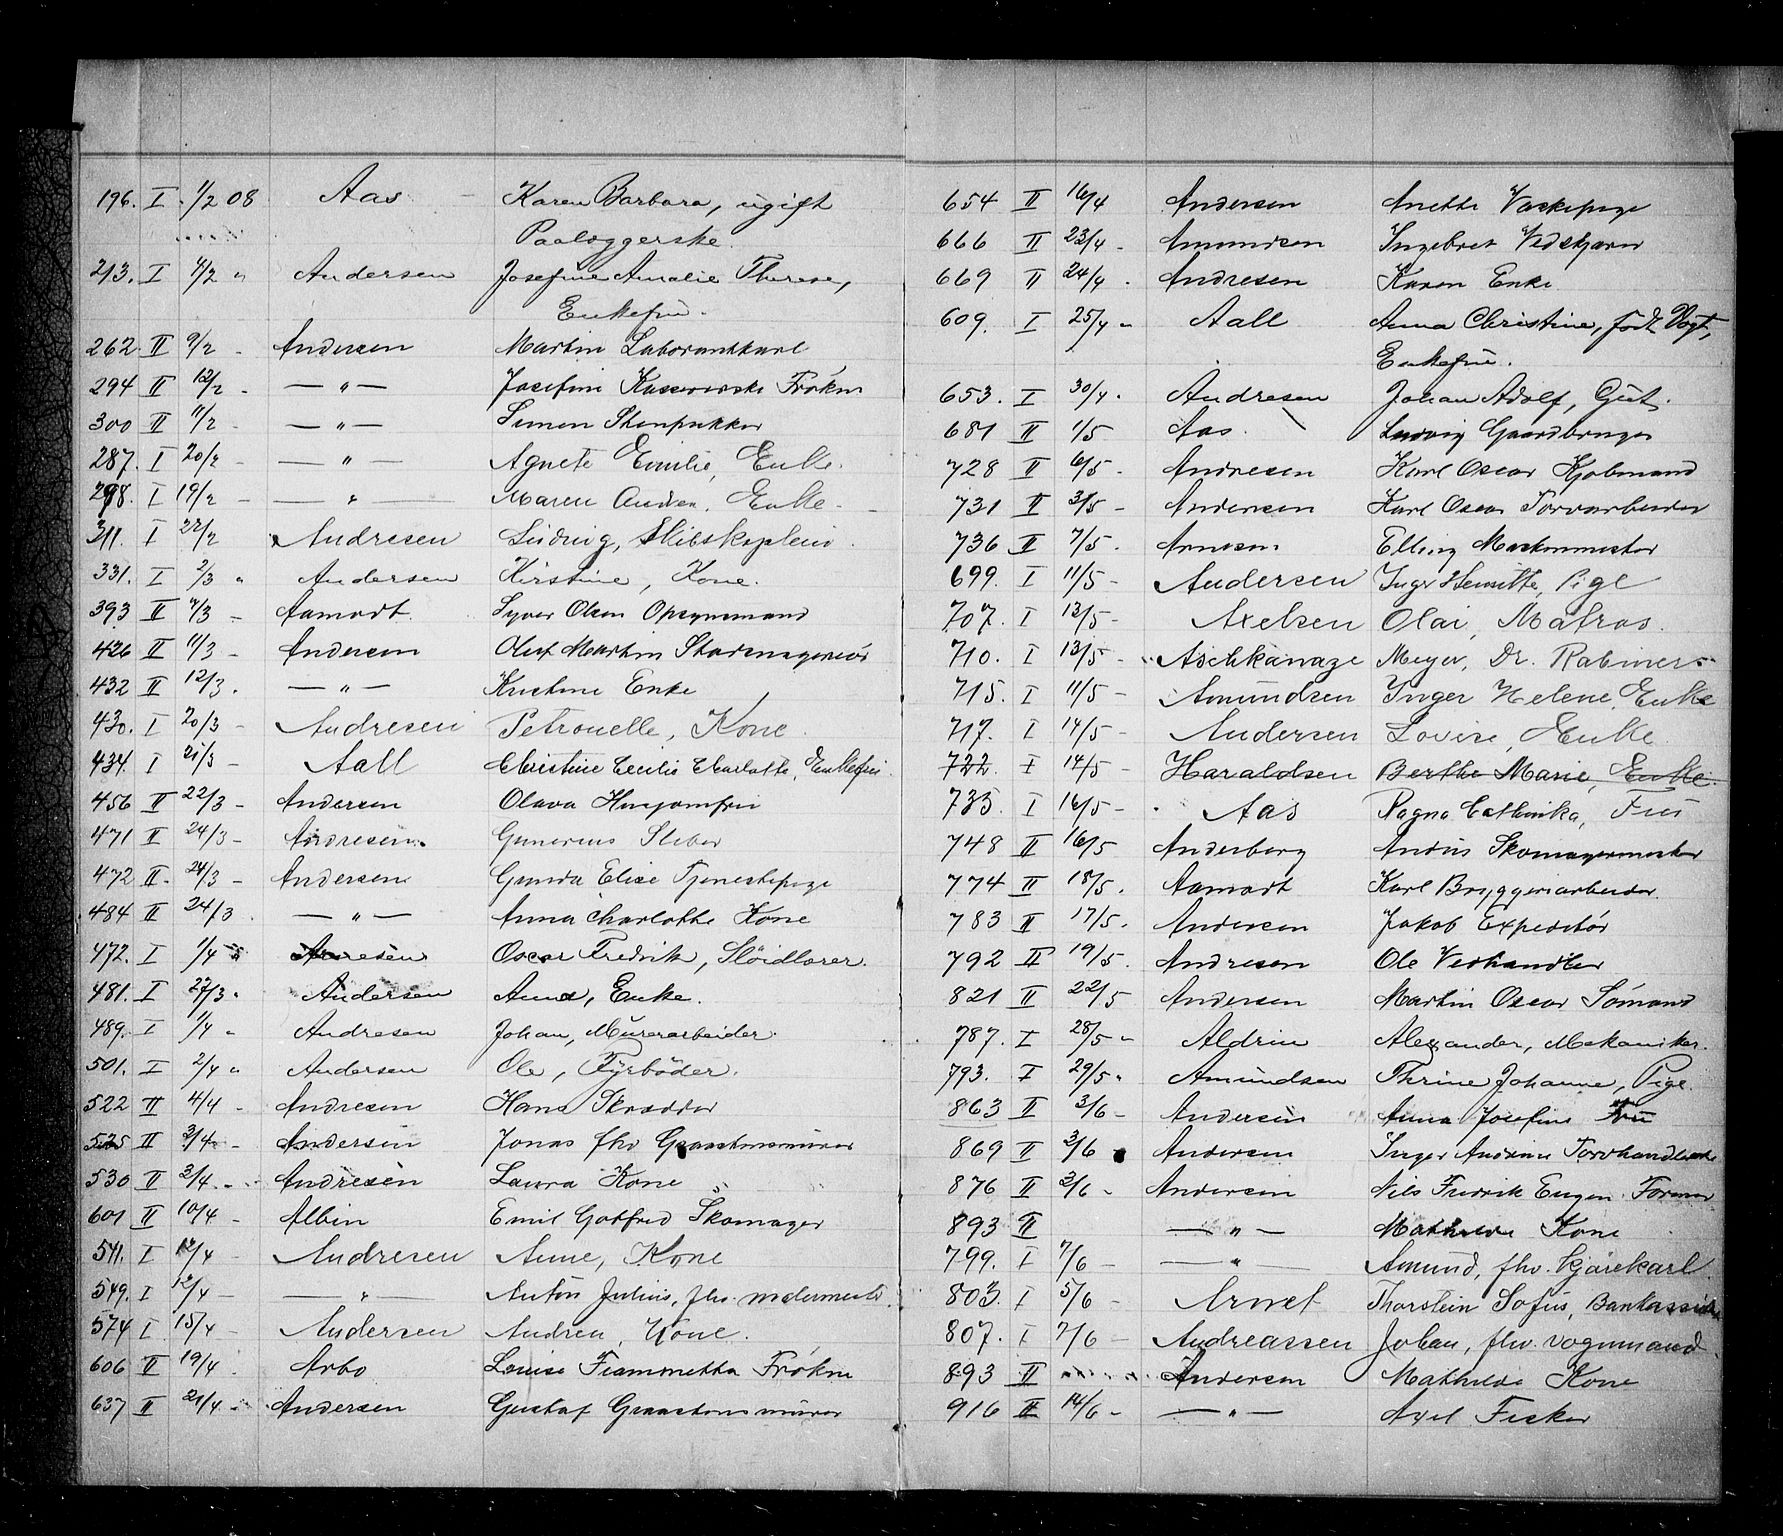 196. I 1/2 08 Aas Karen Barbara, ugift
Paalæggerske.
213. I 4/2 " Andersen Josefine Amalie Therese,
Enkefru.
262 II 9/2 - Andersen Martin Laborantkarl
294 II 12/2 - — " — Josefine Frøken
300 II 11/2 - — " — Simen Stenpukker
287. I 20/2 - — " — Agnete Emilie, Enke.
298. I 19/2 - — " — Maren Andrea, Enke -
311. I 22/2 Andresen Ludvig, Skibskaptein.
331. I 2/3 " Andersen Kirstine, Kone.
393 II 4/3 - Aamodt Syver Olsen Opsynsmand
426 II 11/3 - Andersen Oluf Martin Skomagersvend
432 II 12/3. — " — Kristine Enke
430. I 20/3 - Andresen Petronelle, Kone.
434. I 21/3 - Aall Christine Cecilie Charlotte, Enkefru.
456 II 22/3 - Andersen Olava Husjomfru
471 II 24/3 - Andresen Gunerius Sliber
472 II. 24/3 - Andersen Gunda Elise Tjenestepige
484 II 24/3. — " — Anna Charlotte Kone
472. I 1/4 Andresen Oscar Fredrik, Slöidlærer.
481. I 27/3. Andersen Anna, Enke.
489. I 1/4 " Andresen Johan, Murerarbeider.
501. I 2/4 " Andersen Ole, Fyrböder.
522 II 4/4 - Andresen Hans Skrædder
525 II 3/4 - Andersen Jonas fhv Graastensmurer
530 II 3/4. - Andresen Laura Kone
601 II 10/4 - Albin Emil Gotfred Skomager
541. I 12/4 - Andresen Anne, Kone
549. I 12/4 - — " — Anton Julius, fhv. malermester.
574 I 15/4 - Andersen Andrea, Kone.
606 II 19/4. Arbo Louise Fiammetta Frøken
637 II 21/4 - Andersen Gustaf Graastensmurer
654 II 16/4 Andersen Anette Vaskepige
666 II 23/4 - Amundsen Ingebret Vedskjærer
669 II 24/4. Andresen Karen Enke
609. I 25/4 " Aall Anna Christine, født Vogt,
Enkefru.
653. I 30/4. Andresen Johan Adolf, Gut.
681 II 1/5 Aas. Ludvig Gaardbruger
728 II 6/5 - Andresen Karl Oscar Kjøbmand
731 II 3/5 - Andersen Karl Oscar Torvarbeider
736 II 7/5. Arnesen Elling Maskinmester
699. I 11/5 - Andersen Inger Henritte, Pige
707. I 12/5 - Axelsen Olai, Matros.
710. I 13/5 - Aschkanaze Meyer, Dr. Rabiner
715. I 11/5 - Amundsen Inger Helene, Enke
717. I 14/5 - Andersen Lovise, Enke
722. I 14/5 - Haraldsen Berthe Marie, Enke.
735. I 16/5 - Aas Ragna Cathinka, Fru
748 II 16/5 Anderberg Andris Skomagermester
774 II 18/5. Aamodt Karl Bryggeriarbeider.
783 II 17/5. Andersen Jakob Expeditør
792 II 19/5. Andresen Ole Vedhandler
821 II 22/5 Andersen Martin Oscar Sømand
787. I 28/5 " Aldrin Alexander, Mekaniker.
793. I 29/5 " Amundsen Thrine Johanne, Pige.
863 II 3/6 - Andersen Anna Josefine Fru
869 II 3/6 Andersen Inger Andrine Torvhandlerske
876 II 2/6 - Andersen Nils Fredrik Eugen Former
893 II — " — Mathilde Kone
799. I 7/6 - — " — Amund, fhv. kjørekarl
803. I 5/6 - Arnet Thorstein Sofus, Bankassist.
807. I 7/6 - Andreassen Johan, fhv. vognmand.
893 II Andersen Mathilde Kone
916 II 14/6 - — " — Axel Fisker